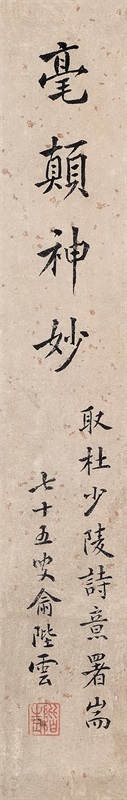 毫顛神妙
取杜少陵詩意署耑
七十五叟俞陛雲